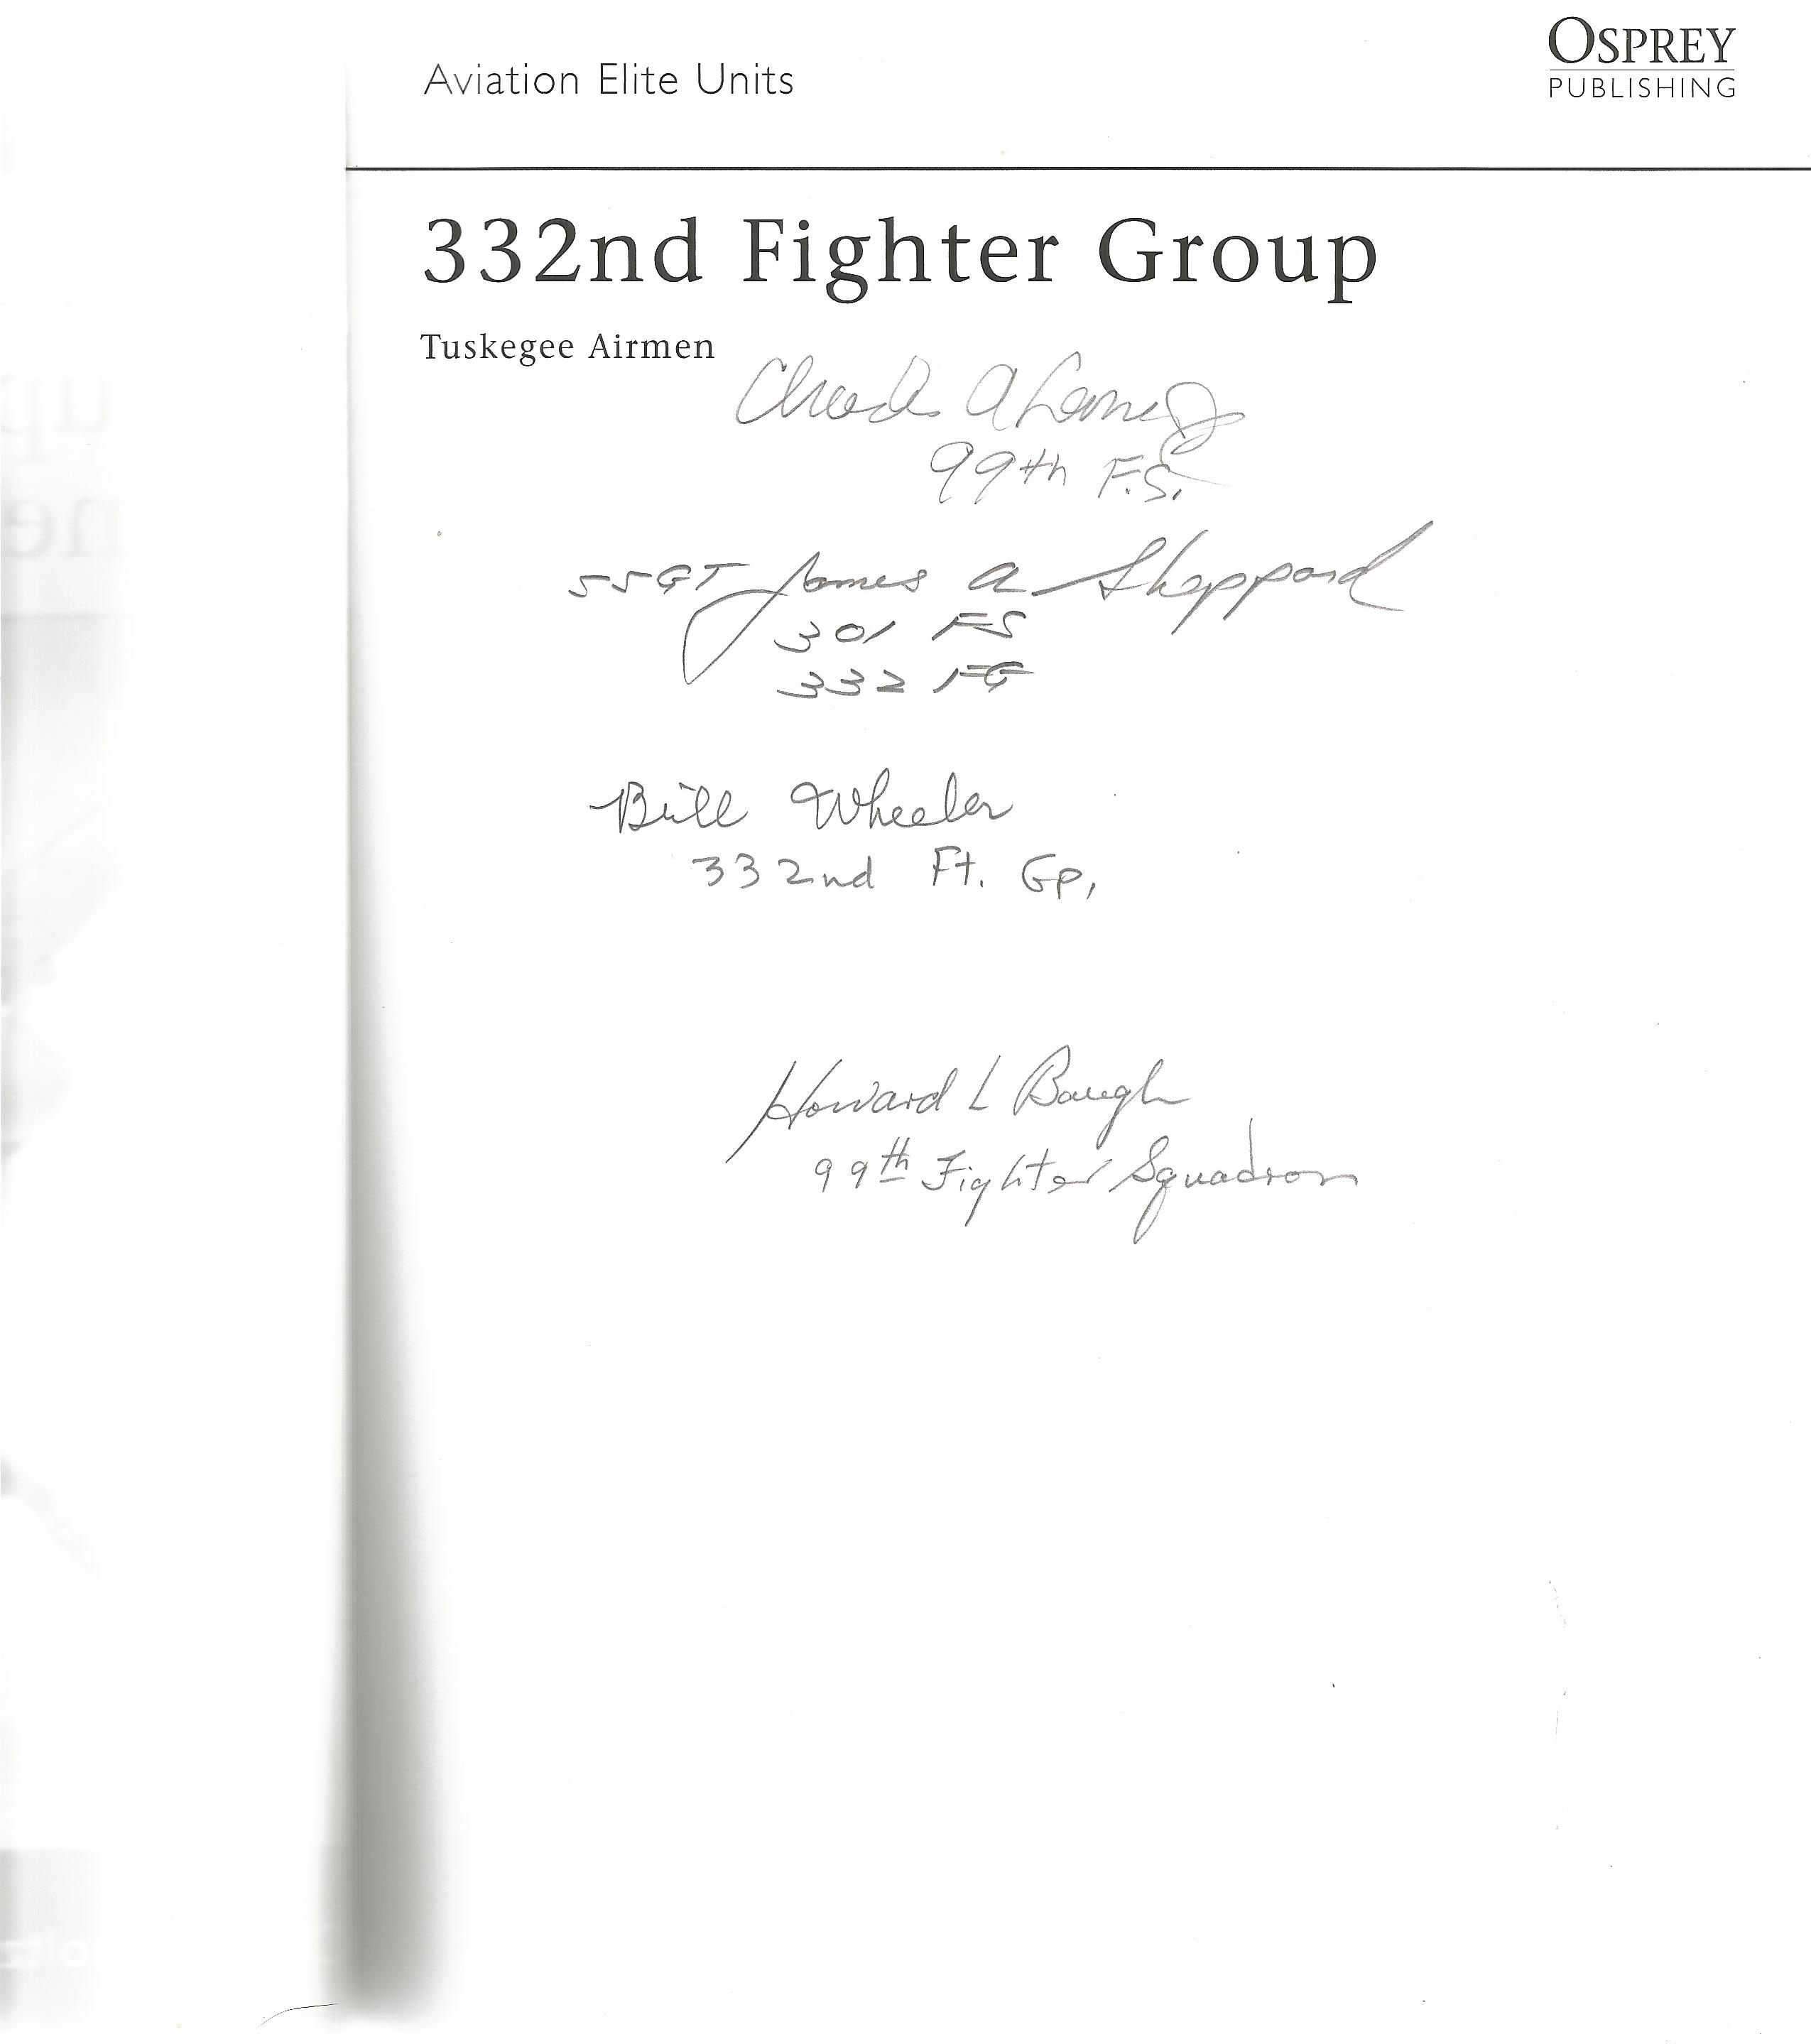 Aviation Elite Units
OSPREY
PUBLISHING
332nd Fighter Group
Tuskegee Airmen
Charles A Lane Jr
99th F.S.
SSGT James A Sheppard
301 FS
332 FG
Bill Wheeler
332nd Ft. Gp.
Howard L Baugh
99th Fighter Squadron